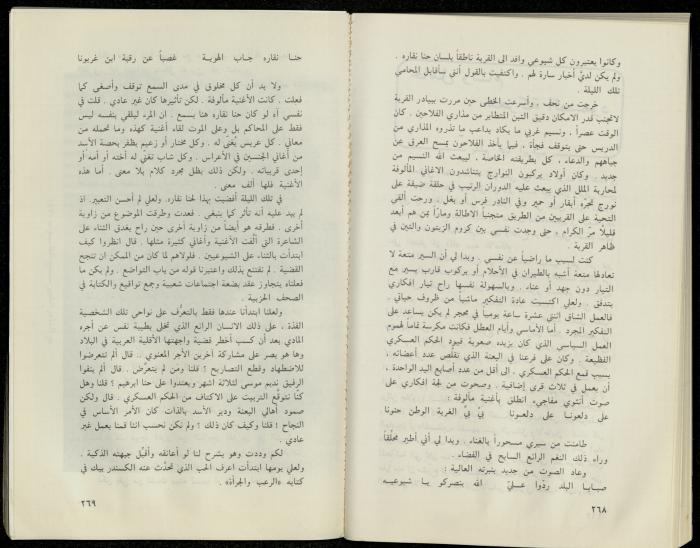 وكانوا يعتبرون كل شيوعي وافد الى القرية ناطقاً بلسان حنا نقاره .
ولم يكن لديّ أخبار سارة لهم . واكتفيت بالقول أنني سأقابل المحامي
تلك الليلة .
خرجت من نحف ، وأسرعت الخطى حين مررت ببيادر القرية
لاتجنب قدر الامكان دقيق التبن المتطاير من مذاري الفلاحين . كان
الوقت عصراً ، ونسيم غربي ما يكاد يداعب ما تذروه المذاري من
الدريس حتى يتوقف فجأة ، فيما يأخذ الفلاحون بمسح العرق عن
جباههم والدعاء ، كل بطريقته الخاصة ، ليبعث الله النسيم من
جديد . وكان أولاد يركبون النوارج يتناشدون الاغاني المألوفة
لمحاربة الملل الذي يبعث عليه الدوران الرتيب في حلقة ضيقة على
نورج تجرّه أبقار أو حمير وفي النادر فرس أو بغل . ورحت ألقي
التحية على القريبين من الطريق متجنباً الاطالة ومارّاً بمن هم أبعد
قليلاً مرّ الكرام , حتى وجدت نفسي بين كروم الزيتون والتين في
ظاهر القرية .
كنت لسبب ما راضياً عن نفسي . وبدا لي أن السير متعة لا
تعادلها متعة أشبه بالطيران في الأحلام أو بركوب قارب يسير مع
التيار دون جهد أو عناء . وبالسهولة نفسها راح تيار افكاري
يتدفق . ولعلي اكتسبت عادة التفكير ماشياً من ظروف حياتي .
فالعمل الشاق اثنتي عشرة ساعة يومياً في محجر لم يكن يساعد على
التفكير المجرد . أما الأماسي وأيام العطل فكانت مكرسة تماماً لهموم
العمل السياسي الذي كان يزيده صعوبة قيود الحكم العسكري
الفظيعة . وكان على فرعنا في البعنة الذي تقلّص عدد أعضائه ،
بسبب قمع الحكم العسكري . الى أقل من عدد أصابع اليد الواحدة ،
أن يعمل في ثلاث قرى إضافية . وصحوت من لجة افكاري على
صوت أنثوي مفاجىء انطلق بأغنية مألوفة :
على دلعونا على دلعونا بيّ بيّ الغربة الوطن حنونا
طامنت من سيري مسحوراً بالغناء . وبدا لي أني أطير محلّقاً
وراء ذلك النغم الرائع السابح في الفضاء .
وعاد الصوت من جديد بنبرته العالية :
صبايا البلد ردّوا عليّ الله ينصركو يا شيوعيه
٢٦٨
حنا نقاره جاب الهوية غصباً عن رقبة ابن غريونا
ولا بد أن كل مخلوق في مدى السمع توقف وأصغى كما
فعلت . كانت الأغنية مألوفة . لكن تأثيرها كان غير عادي . قلت في
نفسي آه لو كان حنا نقاره هنا يسمع . ان المرء ليلقي بنفسه ليس
فقط على المحاكم بل وعلى الموت لقاء أغنية كهذه وما تحمله من
معاني . كل عريس يُغنّى له . وكل مختار أو زعيم يظفر بحصة الأسد
من أغاني الجنسين في الأعراس . وكل شاب تغني له أخته أو أمه أو
إحدى قريباته . ولكن ذلك يظل مجرد كلام بلا معنى . أما هذه
الأغنية فلها ألف معنى .
في تلك الليلة أفضيت بهذا لحنا نقاره . ولعلي لم أحسن التعبير. اذ
لم يبد عليه أنه تأثر كما ينبغي . فعدت وطرقت الموضوع من زاوية
أخرى . فطرقه هو أيضاً من زاوية أخرى حين راح يغدق الثناء على
الشاعرة التي ألّفت الأغنية وأغاني كثيرة مثلها . قال انظروا كيف
ابتدأت بالثناء على الشيوعيين . فلولاهم لما كان من الممكن ان تنجح
القضية . لم نقتنع بذلك واعتبرنا قوله من باب التواضع . ولم يكن ما
فعلناه يتجاوز عقد بضعة اجتماعات شعبية وجمع تواقيع والكتابة في
الصحف الحزبية .
ولعلنا ابتدأنا عندها فقط بالتعرُّف على نواحي تلك الشخصية
الفذة ، على ذلك الانسان الرائع الذي تخلى بطيبة نفس عن أجره
المادي بعد أن كسب أخطر قضية واجهتها الأقلية العربية في البلاد
وها هو يصر على مشاركة آخرين الأجر المعنوي .. قال ألم تتعرضوا
للاضطهاد وقطع التصاريح ؟ قلنا ومن لم يتعرّض . قال ألم ينفوا
الرفيق نديم موسى لثلاثة اشهر ويعتدوا على حنا ابرهيم ؟ قلنا وهل
كنّا نتوقّع التربيت على الاكتاف من الحكم العسكري . قال ولكن
صمود أهالي البعنة ودير الأسد بالذات كان الأمر الأساس في
النجاح ! قلنا وكيف كان ذلك ؟ ولم نكن نحسب اننا قمنا بعمل غير
عادي .
لكم وددت وهو يشرح لنا لو أعانقه وأقبِّل جبهته الذكية .
ولعلي يومها ابتدأت اعرف الحب الذي تحدّث عنه الكسندر بيك في
كتابه «الرعب والجرأة» .
٢٦٩